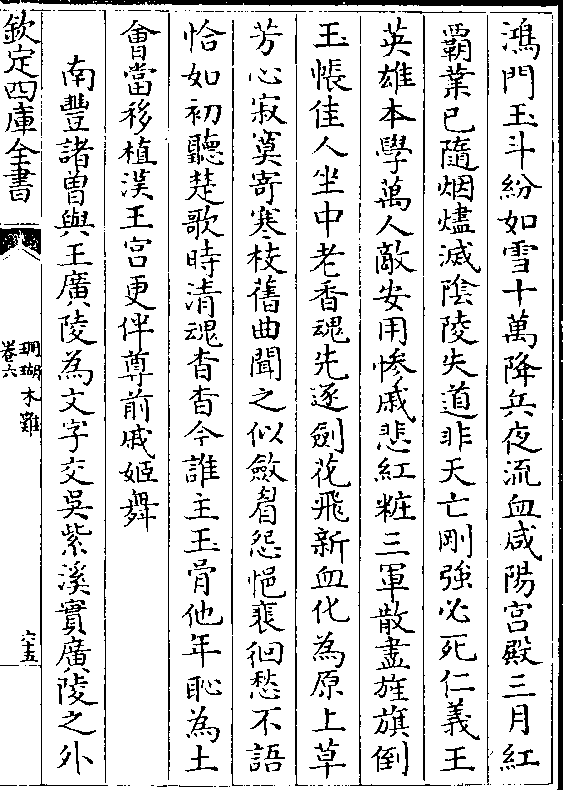 鴻門玉斗紛如雪十萬降兵夜流血咸陽宮殿三月紅
覇業已隨烟燼滅陰陵失道非天亡剛強必死仁義王
英雄本學萬人敵安用慘戚悲紅粧三軍散盡旌旗倒
玉帳佳人坐中老香魂先逐劍花飛新血化為原上草
芳心寂寞寄寒枝舊曲聞之似斂眉怨悒裵徊愁不語
恰如初聽楚歌時清魂杳杳今誰主玉骨他年恥為土
會當移植漢王宮更伴尊前戚姬舞
南豐諸曽與王廣陵為文字交吳紫溪實廣陵之外
欽定四庫全書
珊瑚木難
卷六
六五